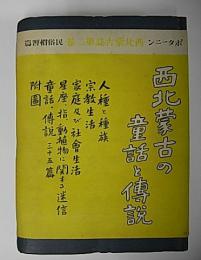 ポターニン 西北蒙古誌第二卷 民俗慣習篇
西北蒙古の
童話と傳說
人種と種族
宗教生活
家庭及び社會生活
星座・指・動植物に関する迷信
童話・傳說 三十五篇
附圖